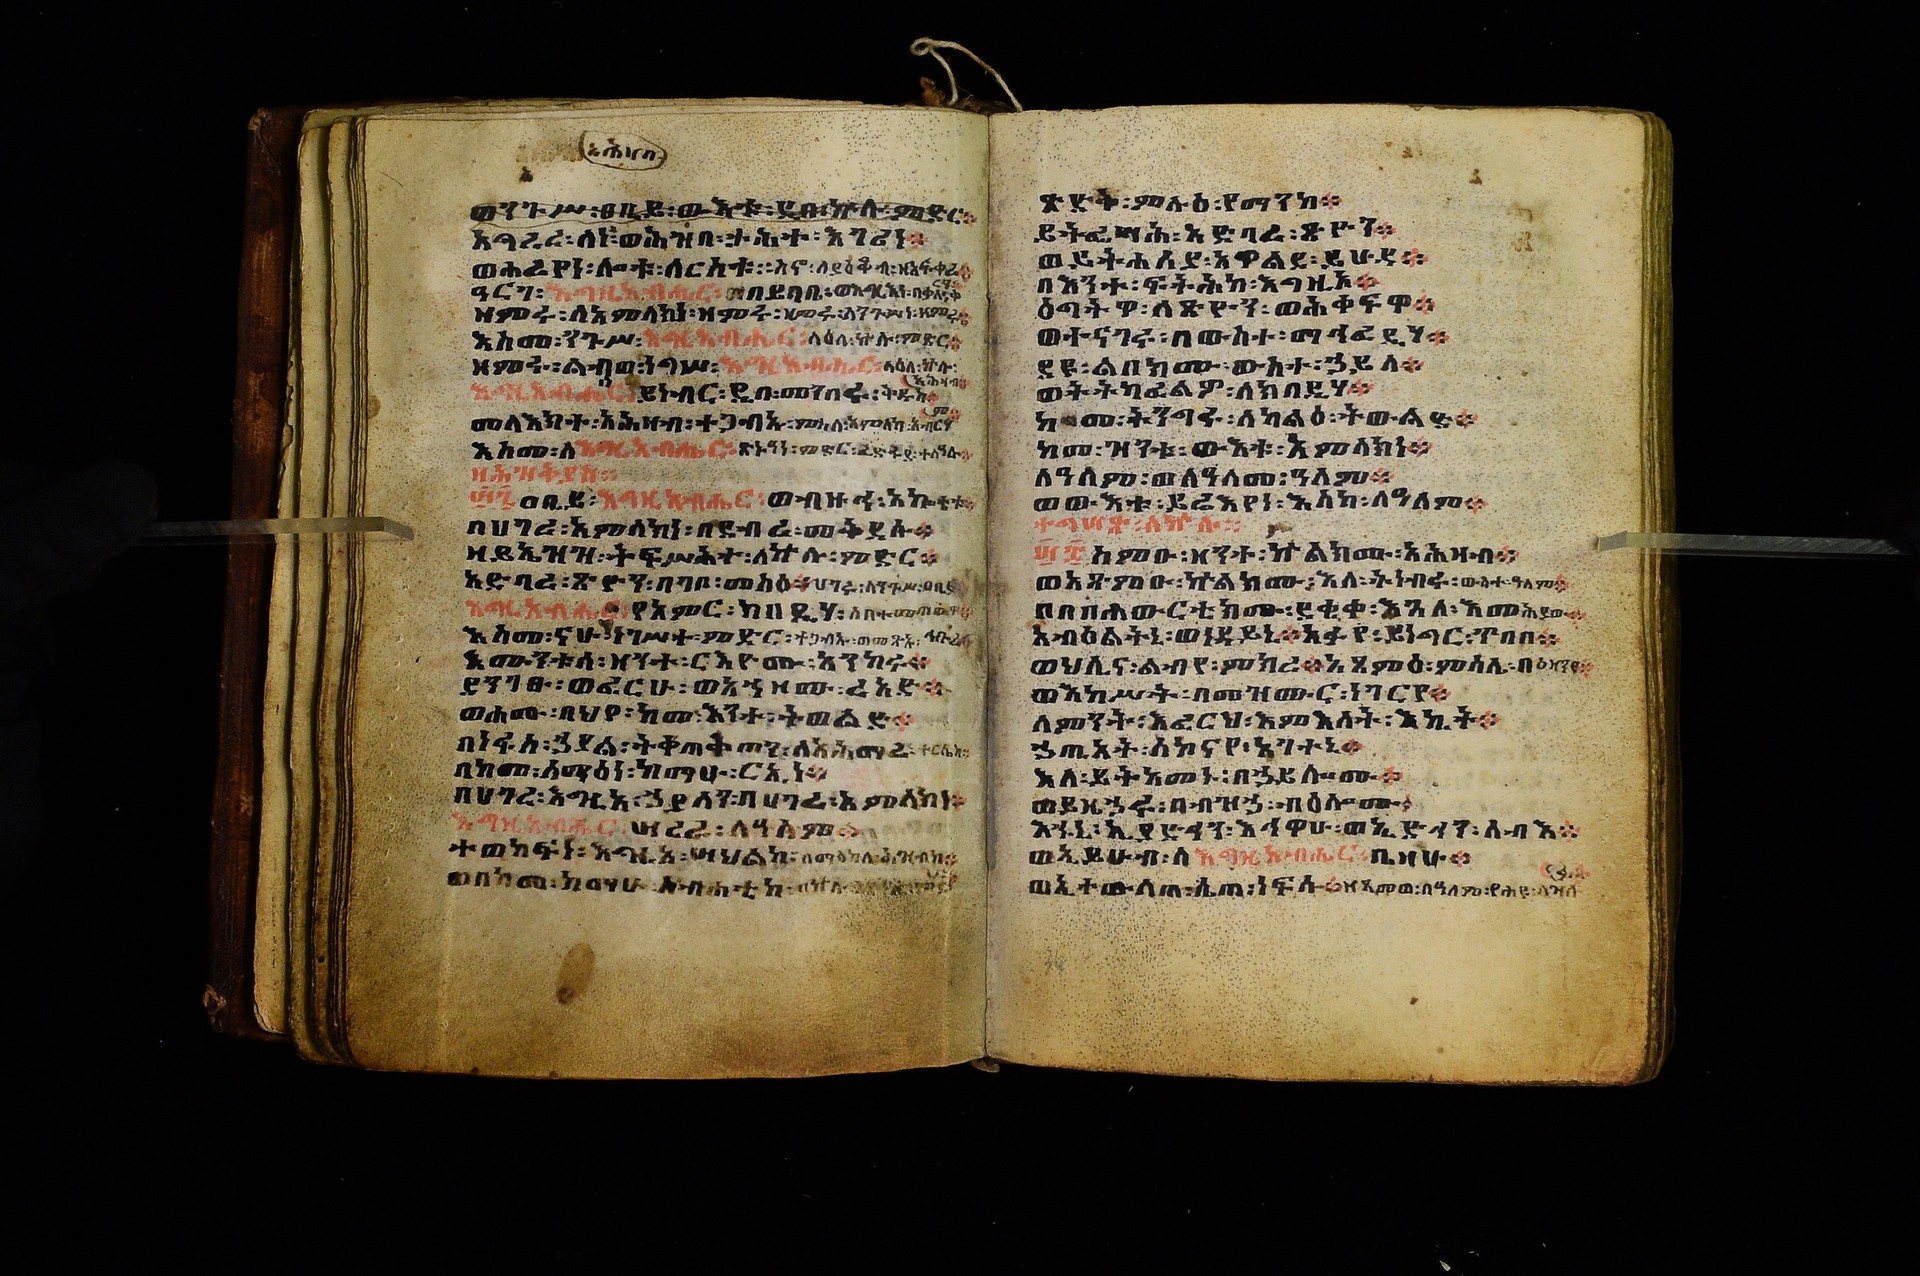 አሕዛበ
ወንጉሥ፡ዐቢይ፡ውእቱ፡ዲበ፡ኵሉ፡ምድር።
አግረረ፡ለነ፡ወሕዝበ፡ታሕተ፡እገሪነ።
ወሐረየነ፡ሎቱ፡ለርስቱ።
ዓርገ፡እግዚአብሔር፡በይባቤ፡ወእግዚእነ፡በቃለ፡ቀርን።
ዘምሩ፡ለአምላክነ፡ዘምሩ፡ዘምሩ፡ለንጉሥነ፡ዘምሩ።
እስመ፡ንጉሥ፡እግዚአብሔር፡ላዕለ፡ኵሉ፡ምድር።
ዘምሩ፡ልብወ፡ነግሠ፡እግዚአብሔር፡ላዕለ፡ኵሉ፡አሕዛብ።
እግዚአብሔር፡ይነብር፡ዲበ፡መንበሩ፡ቅዱስ።
መላእክተ፡አሕዛብ፡ተጋብኡ፡ምስለ፡አምላከ፡አብርሃም።
እስመ፡ለእግዚአብሔር፡ጽኑዓነ፡ምድር፡ፈድፋደ፡ተለዓሉ።
፵፯ዐቢይ፡እግዚአብሔር፡ወብዙኅ፡አኰቴቱ።
በሀገረ፡አምላክነ፡በደብረ፡መቅደሱ።
ዘይኤዝዝ፡ትፍሥሕተ፡ለኵሉ፡ምድር።
አድባረ፡ጽዮን፡በገቦ፡መስዕ።ሀገሩ፡ለንጉሥ፡ዐቢይ።
እግዚአብሔር፡የአምር፡ክበዲሃ፡
እስመ፡ናሁ፡ነገሥተ፡ምድር፡ተጋብኡ፡ወመጽኡ፡ኅቡረ።
እሙንቱሰ፡ዘንተ፡ርእዮሙ፡አንከሩ።
ደንገፁ፡ወፈርሁ፡ወአኀዞሙ፡ረአድ።
ወሐሙ፡በህየ፡ከመ፡እንተ፡ትወልድ።
በነፋስ፡ኃያል፡ትቀጠቅጦን፡ለአሕማረ፡ተርሴስ።
በከመ፡ሰማዕነ፡ከማሁ፡ርኢነ።
በሀገረ፡እግዚአ፡ኃያላን፡በሀገረ፡አምላክነ።
እግዚአብሔር፡ሣረራ፡ለዓለም።
ተወከፍነ፡እግዚኦ፡ሣህልከ፡በማዕከለ፡ሕዝብከ።
ወበከመ፡ከማሁ፡ስብሐቲከ፡
ጽድቅ፡ምሉዕ፡የማንከ።
ይትፌሣሕ፡አድባረ፡ጽዮን።
ወይትሐሠያ፡አዋልደ፡ይሁዳ።
በእንተ፡ፍትሕከ፡እግዚኦ።
ዕግትዋ፡ለጽዮን፡ወሕቀፍዋ።
ወተናገሩ፡በውስተ፡ማኅፈዲሃ።
ደዩ፡ልበክሙ፡ውስተ፡ኃይላ።
ወትትካፈልዎ፡ለክበዲሃ።
ከመ፡ትንግሩ፡ለካልዕ፡ትውልድ።
ከመ፡ዝንቱ፡ውእቱ፡አምላክነ።
ለዓለም፡ወለዓለመ፡ዓለም።
ወውእቱ፡ይሬእየነ፡እስከ፡ለዓለም።
ተግሣጽ፡ለኵሉ።
፵፰ስምዑ፡ዘንተ፡ኵልክሙ፡አሕዛብ።
ወአጽምዑ፡ኵልክሙ፡እለ፡ትነብሩ፡ውስተ፡ዓለም።
በበበሐውርቲክሙ፡ደቂቀ፡እጓለ፡እመሕያው።
አብዕልትኒ፡ወነዳይኒ።አፋየ፡ይነግር፡ጥበበ።
ወህሊና፡ልብየ፡ምክረ።አጸምዕ፡ምሳሌ፡በዕዝንየ።
ወእከሥት፡በመዝሙር፡ነገርየ።
ለምንት፡እፈርህ፡እምእለት፡እኪት።
ኃጢአት፡ሰኰናየ፡አገተኒ።
እለ፡ይትአመኑ፡በኃይሎሙ።
ወይዜኃሩ፡በብዝኃ፡ብዕሎሙ።
እኁኒ፡ኢያድኅን፡እኅዋሁ፡ወኢያድኅን፡ሰብእ።
ወኢይሁብ፡ለእግዚአብሔር፡ቤዛሁ።
ወኢተውላጠ፡ሤጠ፡ነፍሱ።ዘጻመወ፡በዓለም፡የሐዩ፡ለዝሉ